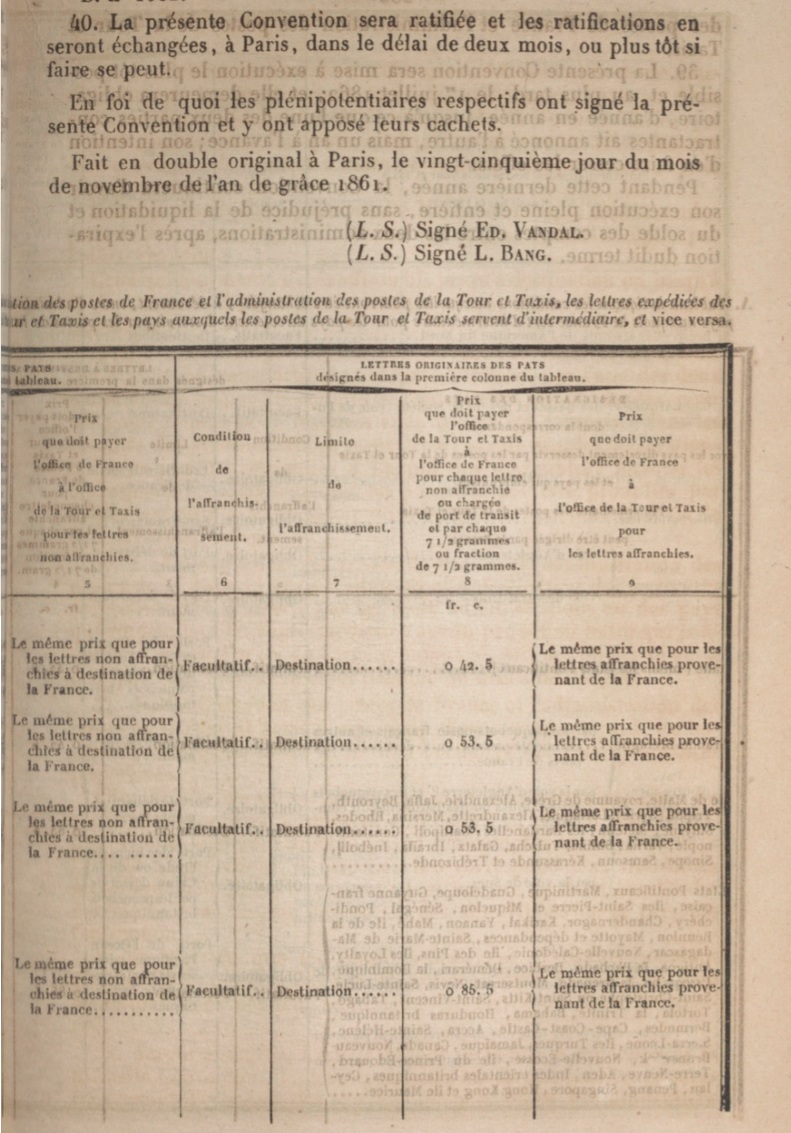 40. La présente Convention sera ratifiée et les ratifications en
seront échangées, à Paris, dans le délai de deux mois, ou plus tôt si
faire se peut.
En foi de quoi les plénipotentiaires respectifs ont signé la pré-
sente Convention et y ont apposé leurs cachets.
Fait en double original à Paris, le vingt-cinquième jour du mois
de novembre de l'an de grâce 1861.
(L. S.) Signé ED. VANDAL.
(L. S.) Signé L. BANG.
tion des postes de France et l'administration des postes de la Tour et Taxis, les lettres expédiées des
ur et Taxis et les pays auxquels les postes de la Tour et Taxis servent d'intermédiaire, et vice versa.
S PAYS
tableau.
LETTRES ORIGINAIRES DES PAYS
désignés dans la première colonne du tableau.
Prix
que doit payer
l'office de France
à l'office
de la Tour et Taxis
pour les lettres
non affranchies.
5
Condition
de
l'affranchis-
sement.
6
Limite
de
l'affranchissement.
7
Prix
que doit payer
l'office
de la Tour et Taxis
à
l'office de France
pour chaque lettre
non affranchie
ou chargée
de port de transit
et par chaque
7 1/2 grammes
ou fraction
de 7 1/2 grammes.
8
Prix
que doit payer
l'office de France
à
l'office de la Tour et Taxis
pour
les lettres affranchies.
9
fr. c.
Le même prix que pour
les lettres non affran-
chies à destination de
la France.
Facultatif..
Destination......
0 42. 5
Le même prix que pour les
lettres affranchies prove-
nant de la France.
Le même prix que pour
les lettres non affran-
chies à destination de
la France.
Facultatif..
Destination......
0 53. 5
Le même prix que pour les
lettres affranchies prove-
nant de la France.
Le même prix que pour
les lettres non affran-
chies à destination de
la France.... ......
Facultatif..
Destination......
0 53. 5
Le même prix que pour les
lettres affranchies prove-
nant de la France.
Le même prix que pour
les lettres non affran-
chies à destination de
la France...........
Facultatif..
Destination......
0 85. 5
Le même prix que pour les
lettres affranchies prove-
nant de la France.